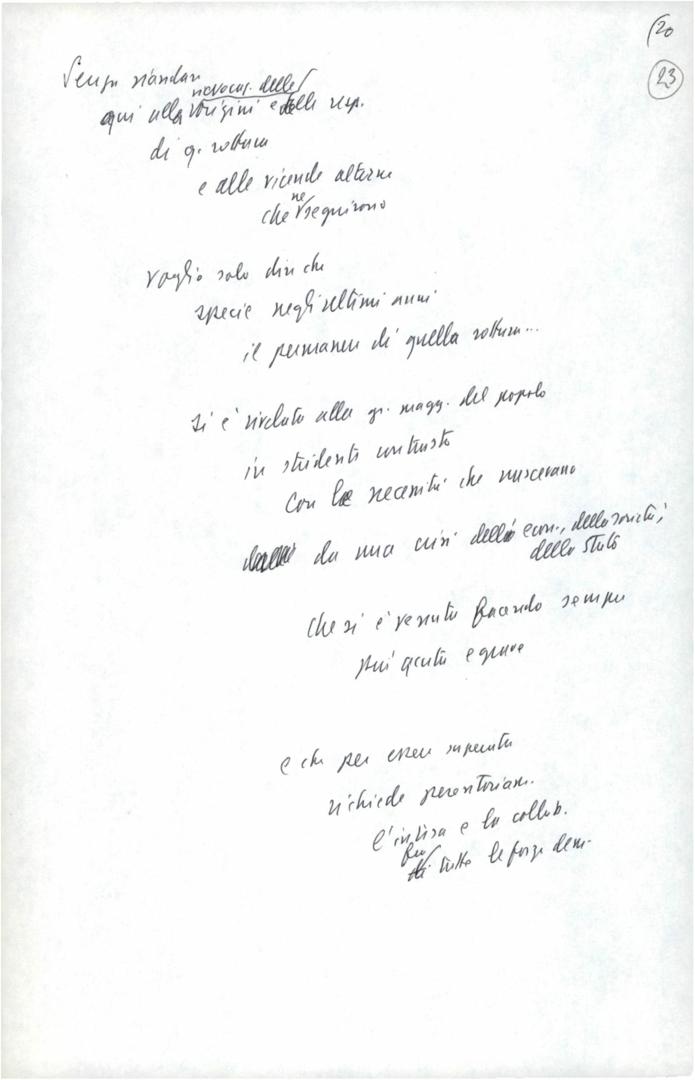 20
23
Senza riandare
qui alla rievocaz. delle origini e delle resp.
di q. rottura
e alle vicende alterne
che ne seguirono
voglio solo dire che
specie negli ultimi anni
il permanere di quella rottura...
si è rivelato alla gr. magg. del popolo
in stridente contrasto
con le necessità che nascevano
da una crisi della econ., della società,
dello Stato
che si è venuta facendo sempre
più acuta e grave
e che per essere superata
richiede perentoriam.
l'intesa e la collab.
fra tutte le forze dem.